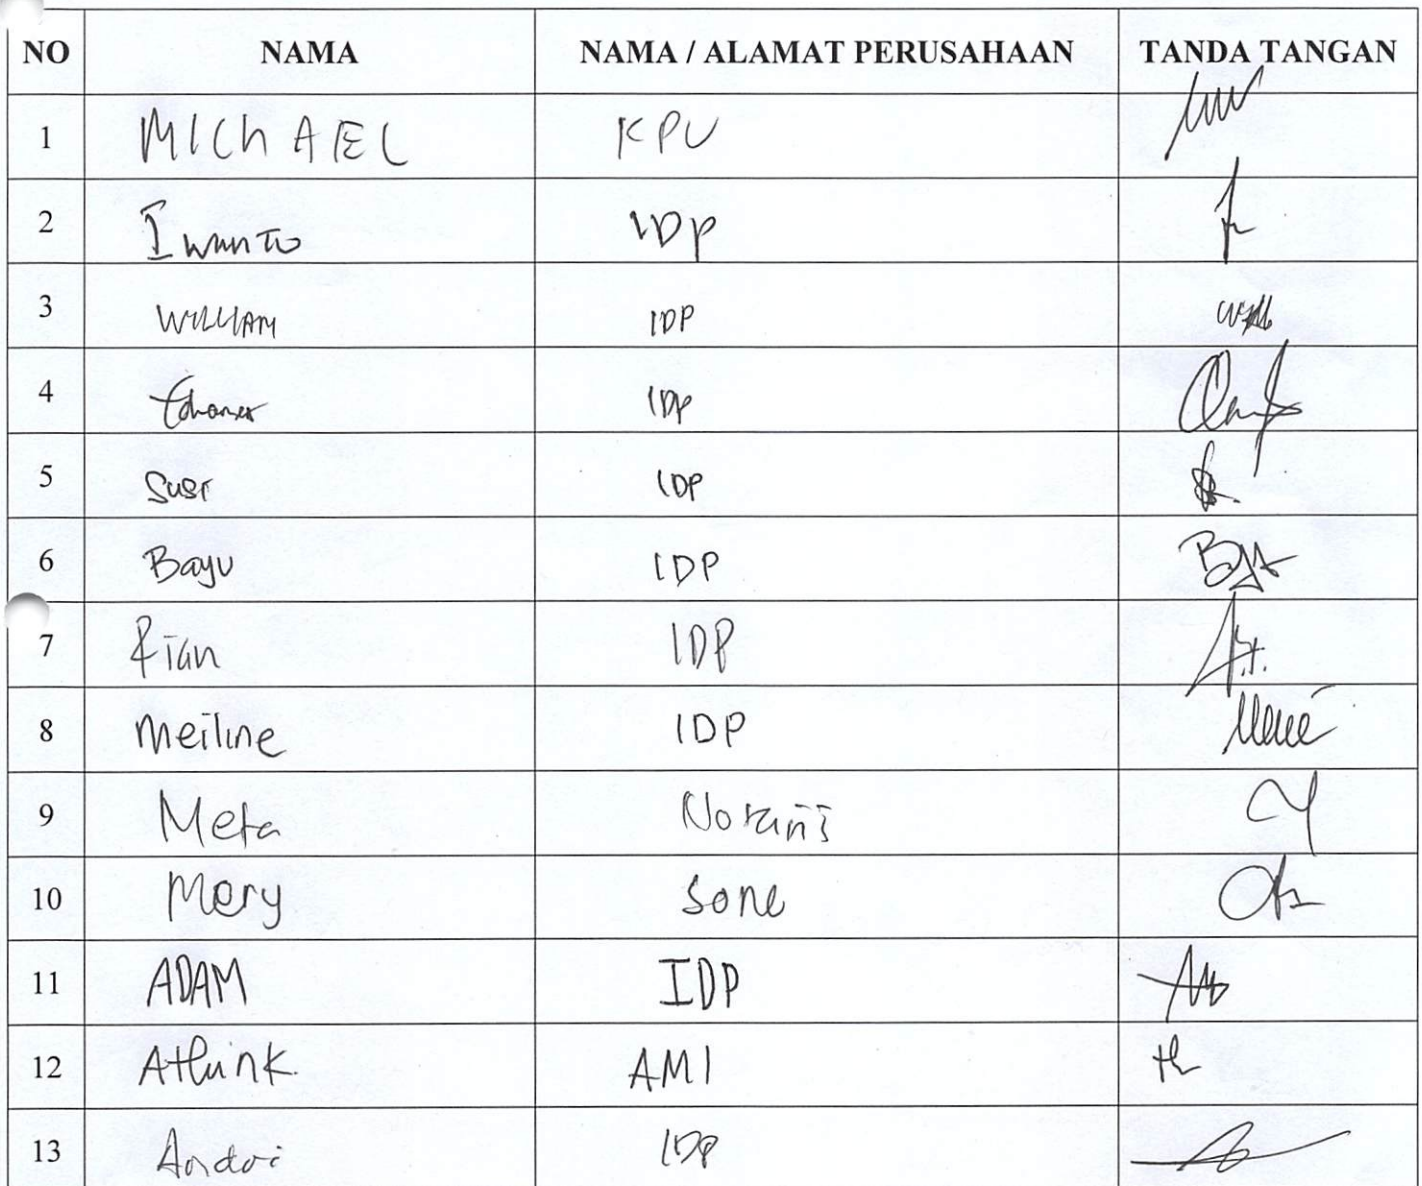 NO NAMA NAMA / ALAMAT PERUSAHAAN TANDA TANGAN
1 MIChAEL KPU
2 Iwanto IDP
3 WILLIAM IDP
4 IDP
5 Susi IDP
6 Bayu IDP
7 Rian IDP
8 Meiline IDP
9 Meta
10 Mery Sone
11 ADAM IDP
12 AMI
13 IDP